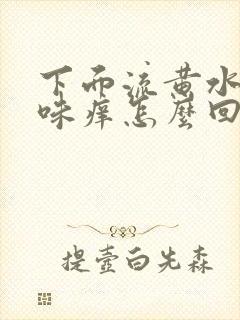 下而流黄水
味痒怎麼回
提壺白先森